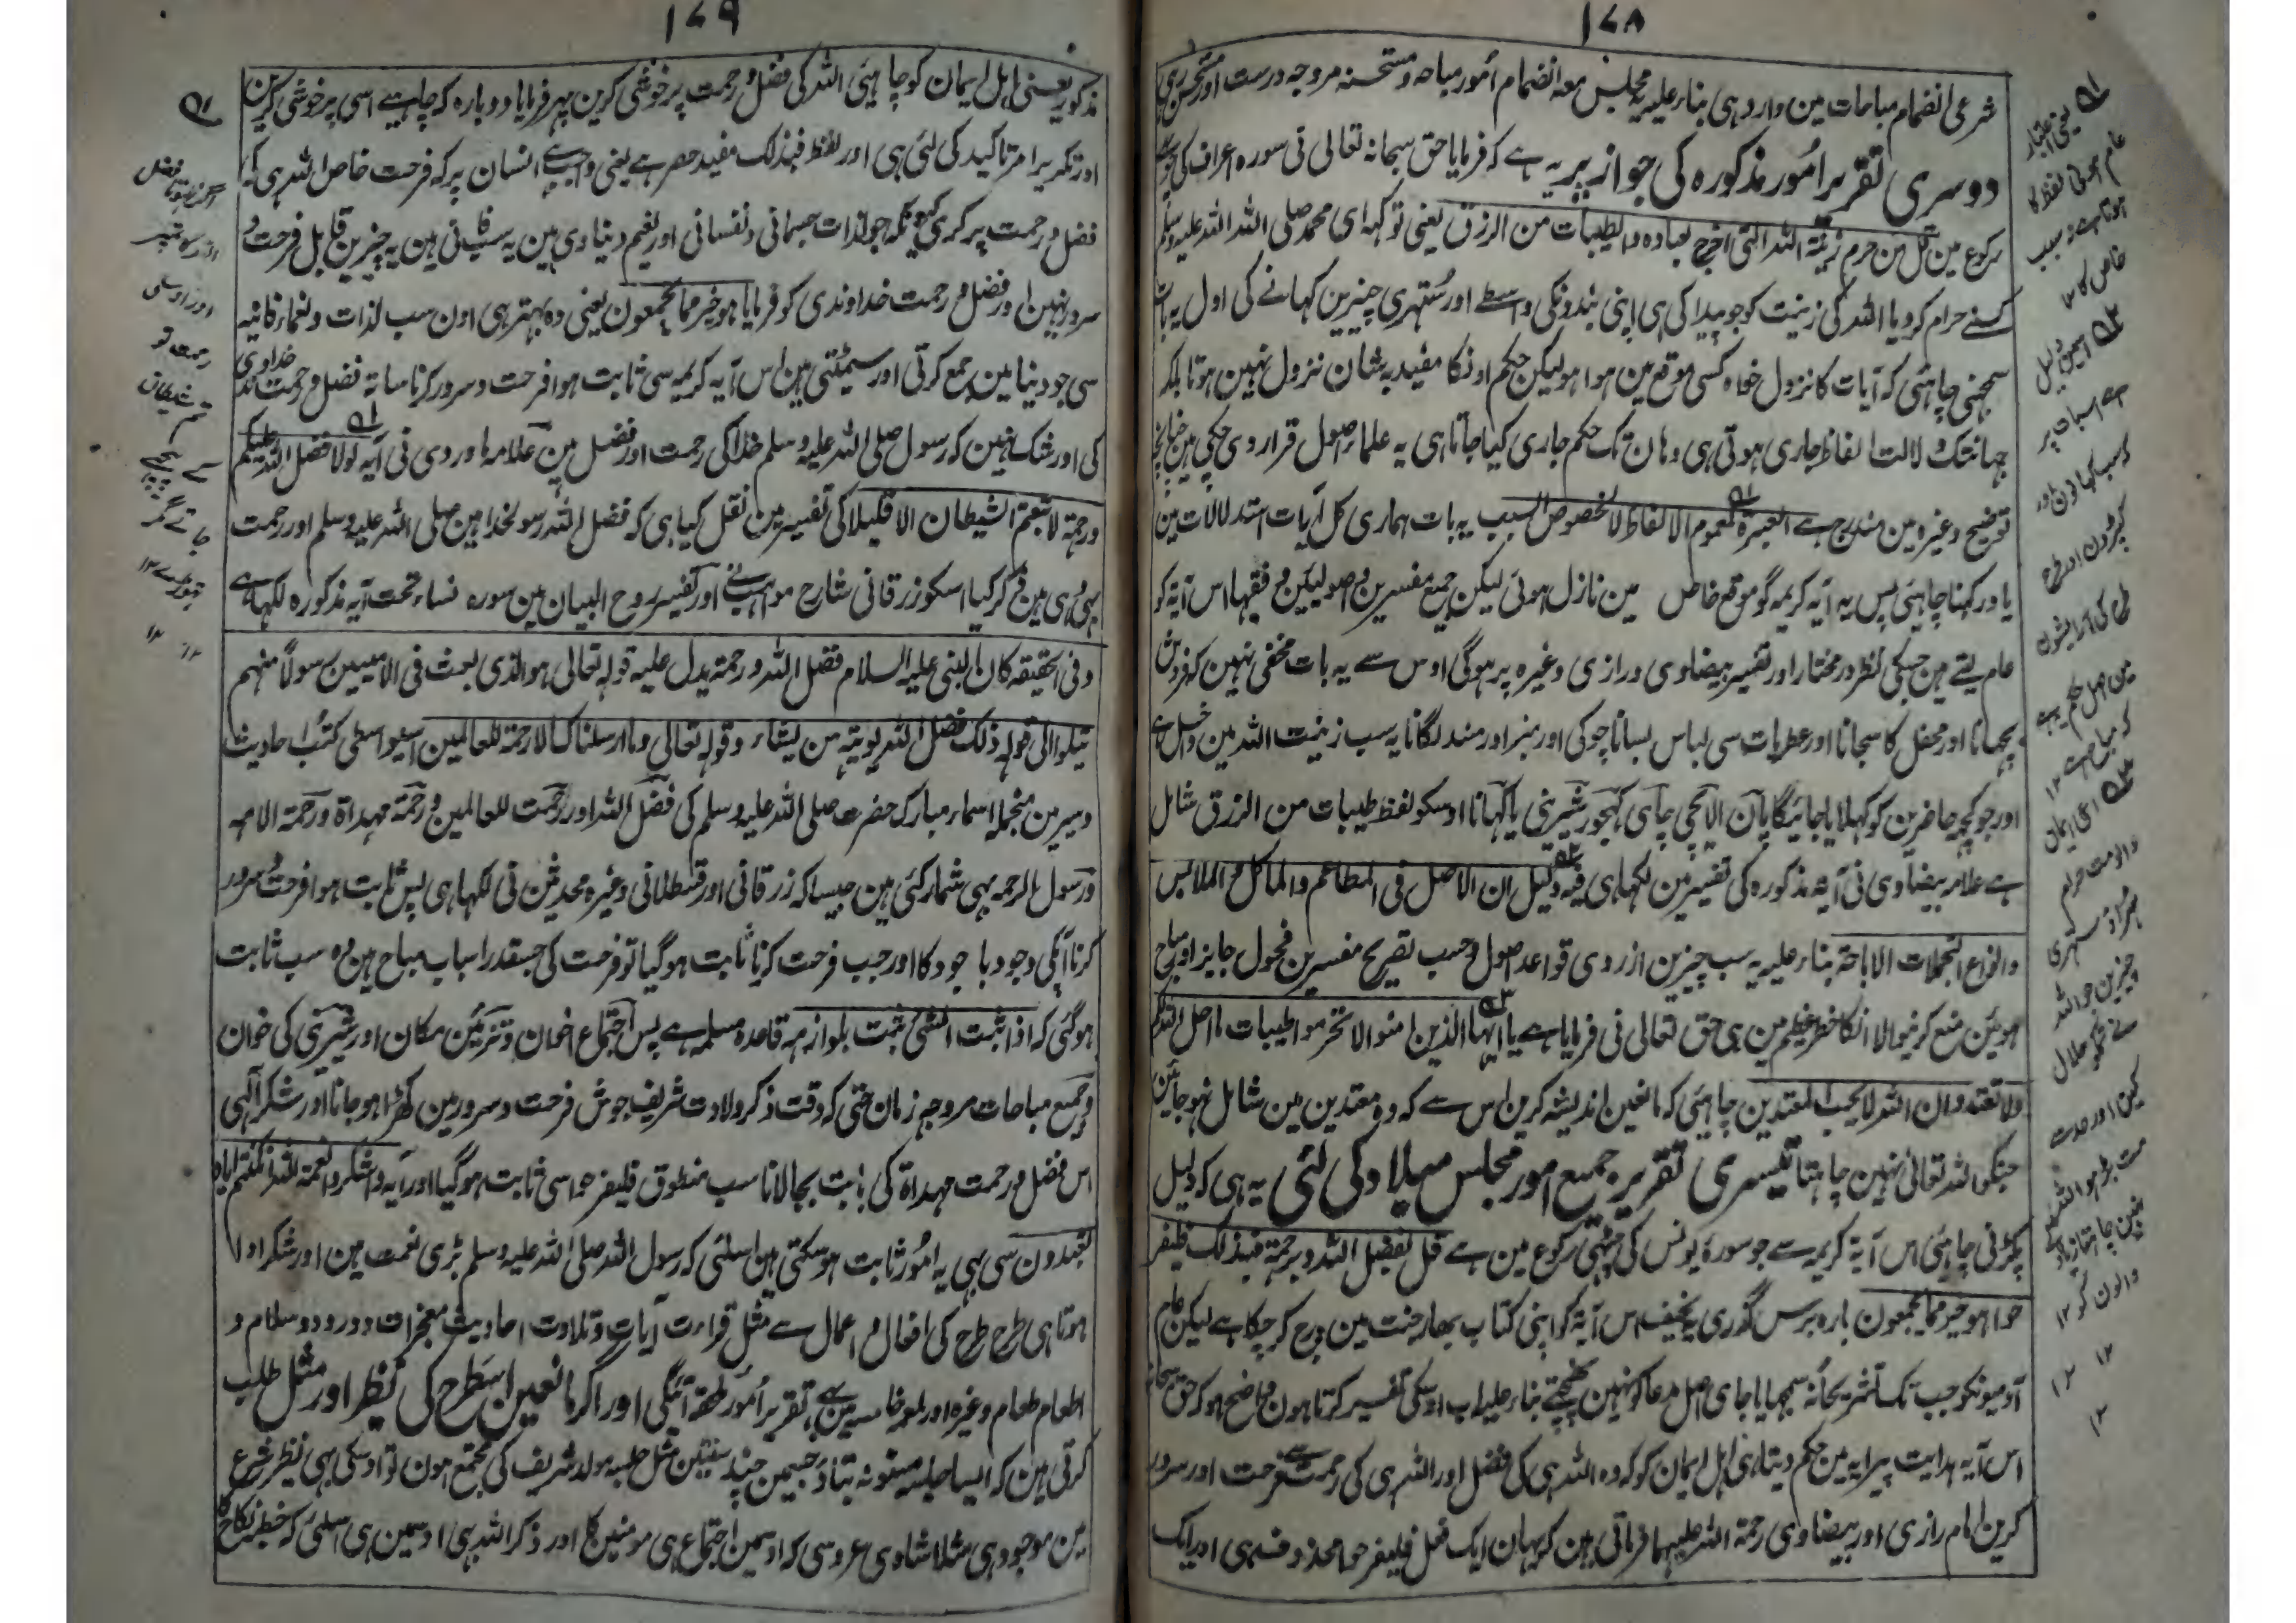 ۱۷۸
شرعی انضمام مباحات مین وارد ہی بناء علیہ یہ مجلس معہ انضمام اُمور مباحہ و مستحسنہ مروجہ درست اور مستحسن رہی
دوسری تقریر اُمور مذکورہ کی جواز پر یہ ہے کہ فرمایا حق سبحانہ تعالی نی سورہ اعراف کی
رکوع مین قل من حرم زینۃ اللہ التی اخرج لعبادہ والطیبات من الرزق یعنی تو کہہ ای محمد صلی اللہ علیہ وسلم
کسنے حرام کردیا اللہ کی زینت کو جو پیدا کی ہی اپنی بندونکی واسطے اور ستہری چیزین کہانے کی اول یہ بات
سمجہنی چاہئی کہ آیات کا نزول خواہ کسی موقع مین ہوا ہو لیکن حکم اونکا مقید بہ شان نزول نہین ہوتا بلکہ
جہانتک دلالت الفاظ جاری ہوتی ہی وہان تک حکم جاری کیا جاتا ہی یہ علماء اصول قرار دی چکی ہین چنانچہ
توضیح وغیرہ مین مندرج ہے العبرۃ لعموم الالفاظ لا لخصوص السبب یہ بات ہماری کل آیات استدلالات مین
یاد رکہنا چاہئی پس یہ آیہ کریمہ گو موقع خاص مین نازل ہوئی لیکن جمیع مفسرین و اصولیکن و فقہا اس آیۃ کو
عام لیتے ہین جسکی نظر در مختار اور تفسیر بیضاوی و رازی وغیرہ پر ہوگی اوس سے یہ بات مخفی نہین کہ فروش
بچہانا اور محفل کا سجانا اور عطریات سی لباس بسانا چوکی اور منبر اور مسند لگانا یہ سب زینت اللہ مین داخل ہے
اور جو کچہہ حاضرین کو کہلایا جائیگا پان الایچی چاہی کہجور شیرینی یا کہانا اوسکو لفظ طیبات من الرزق شامل
ہے علامہ بیضاوی نی آیہ مذکورہ کی تفسیر مین لکہا ہی فیہ دلیل ان الاصل فی المطاعم والماکل والملابس
وانواع التجملات الاباحتہ بناء علیہ یہ سب چیزین ازروی قواعد اصول و حسب تصریح مفسرین فحول جایز اور مباح
ہوئین منع کرنیوالا انکا خطر عظیم مین ہی حق تعالی نی فرمایا ہے یا ایہا الذین امنوا لا تحرموا طیبات ما احل اللہ لکم
ولا تعتدوا ان اللہ لا یحب المعتدین چاہئی کہ مانعین اندیشہ کرین اس سے کہ وہ معتدین مین شامل نہو جائین
جنکو اللہ تعالی نہین چاہتا تیسری تقریر جمیع امور مجلس میلاد کی لئی یہ ہی کہ دلیل
پکڑنی چاہئی اس آیۃ کریمہ سے جو سورۃ یونس کی چہٹی رکوع مین ہے قل بفضل اللہ و برحمتہ فبذلک فلیفر
حوا ہو خیر مما یجمعون بارہ برس گذری یہ نحیف اس آیۃ کو اپنی کتاب بہار جنت مین درج کر چکا ہے لیکن عام
آدمیونکو جب تک تشریحاً نہ سمجہایا جای اصل مدعا کو نہین پہنچتے بناء علیہ اب اوسکی تفسیر کرتا ہون واضح ہو کہ حق سبحانہ
اس آیہ ہدایت پیرایہ مین حکم دیتا ہی اہل ایمان کو کہ وہ اللہ ہی کی فضل اور اللہ ہی کی رحمت سے فرحت اور سرور
کرین امام رازی اور بیضاوی رحمۃ اللہ علیہما فرماتی ہین کہ یہان ایک فعل فلیفرحوا محذوف ہی اور ایک
یعنی اعتبار
عام ہوتی لفظ کا
ہوتا ہے نہ سبب
خاص کا ۱۲
اسمین دلیل
ہے اسبات پر
کہ سب کہانون اور
کپڑون اور طرح
طرح کی آرایشون
مین اصل حکم یہ ہے
کہ مباح ہے ۱۲
ای ایمان
والو مت حرام
ٹہراؤ ستہری
چیزین جو اللہ
نے تمکو حلال
کین اور حد سے
مت بڑہو اللہ
نہین چاہتا زیادتی
والون کو ۱۲
۱۲ ۱۲
۱۲
۱۷۹
مذکور یعنی اہل ایمان کو چاہئی اللہ کی فضل و رحمت پر خوشی کرین پہر فرمایا دوبارہ کہ چاہیے اسی پر خوشی کرین
اور تکریر امر تاکید کی لئی ہی اور لفظ فبذلک مفید حصر ہے یعنی واجب ہے انسان پر کہ فرحت خاص اللہ ہی کی
فضل و رحمت پر کری کیونکہ جو لذات جسمانی و نفسانی اور نعیم دنیاوی ہین یہ سب فانی ہین یہ چیزین قابل فرحت و
سرور نہین اور فضل و رحمت خداوندی کو فرمایا ہو خیر مما یجمعون یعنی وہ بہتر ہی اون سب لذات و نعماء فانیہ
سی جو دنیا مین جمع کرتی اور سمیٹتی ہین اس آیہ کریمہ سی ثابت ہوا فرحت و سرور کرنا ساتہ فضل و رحمت خداوندی
کی اور شک نہین کہ رسول صلی اللہ علیہ وسلم خدا کی رحمت اور فضل ہین علامہ ماوردی نی آیہ لولا فضل اللہ علیکم
ورحمتہ لاتبعتم الشیطان الا قلیلا کی تفسیر مین نقل کیا ہی کہ فضل اللہ رسولخدا ہین صلی اللہ علیہ وسلم اور رحمت
بہی وہی ہین ذکر کیا اسکو زرقانی شارح مواہب نے اور تفسیر روح البیان مین سورہ نساء تحت آیہ مذکورہ لکہا ہے
وفی الحقیقہ کان النبی علیہ السلام فضل اللہ و رحمتہ یدل علیہ قولہ تعالی ہو الذی بعث فی الامیین رسولاً منہم
یتلو الی قولہ ذلک فضل اللہ یوتیہ من یشاء وقولہ تعالی وما ارسلناک الا رحمۃ للعالمین اسیواسطی کتب احادیث
و سیر مین منجملہ اسماء مبارک حضرت صلی اللہ علیہ وسلم کی فضل اللہ اور رحمت للعالمین و رحمۃ مہداۃ و رحمۃ الامہ
و رسول الرحمہ بہی شمار کئی ہین جیسا کہ زرقانی اور قسطلانی وغیرہ محدثین نی لکہا ہی پس ثابت ہوا فرحت و سرور
کرنا آپکی وجود باجود کا اور جب فرحت کرنا ثابت ہوگیا تو فرحت کی جسقدر اسباب مباح ہین وہ سب ثابت
ہوگئی کہ اذا ثبت الشئی ثبت بلوازمہ قاعدہ مسلمہ ہے پس اجتماع اخوان و تزئین مکان اور شیرینی کی خوان
و جمیع مباحات مروجہ زمان حتی کہ وقت ذکر ولادت شریف جوش فرحت و سرور مین کہڑا ہو جانا اور شکر الہی
اس فضل و رحمت مہداۃ کی بابت بجالانا سب منطوق فلیفرحوا سی ثابت ہوگیا اور آیہ واشکروا نعمۃ اللہ ان کنتم ایاہ
تعبدون سی بہی یہ امور ثابت ہوسکتی ہین اسلئی کہ رسول اللہ صلی اللہ علیہ وسلم بڑی نعمت ہین اور شکر ادا
ہوتا ہی طرح طرح کی افعال و اعمال سے مثل قراءت آیات و تلاوت احادیث معجزات و درود و سلام و
اطعام طعام وغیرہ اور لمعہ خامسہ مین ہے تقریر اُمور ملحقہ آئیگی اور اگر مانعین اسطرح کی نظر اور مثل طلب
کرتی ہین کہ ایسا جلسہ مسنونہ بتاؤ جسمین چند سنتین مثل جلسہ مولد شریف کی مجتمع ہون تو اوسکی بہی نظیر شرع
مین موجود ہی مثلا شادی عروسی کہ اوسمین اجتماع ہی مومنین کا اور ذکر اللہ بہی اوسمین ہی اسلئی کہ خطبہ نکاح کا
اگر نہوتا فضل
اللہ کا تمپر
اور اوسکی
رحمت تو
تم شیطان
کے پیچہے
جاتے مگر
تہوڑے ۱۲
۱۲ ۱۲